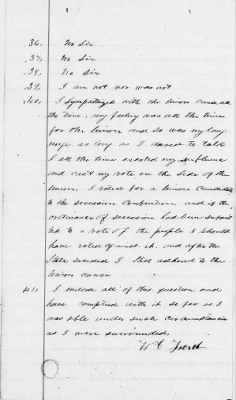 36, No Sir
37, No Sir
38, No Sir
39, I am not nor was not
40, I Sympathized with the Union cause all
the time, my feeling was all the time
for the Union and so was my lang-
uage as long as I dared to talk
I all the time exerted my influence
and cast my vote on the side of the
Union. I voted for a Union Candidate
to the Secession Convention and if the
ordinance of secession had been submit
ted to a vote of the people I should
have voted against it, and after the
State seceded I still adhered to the
Union cause
41, I all of this question and
have complied with it so far as I
was able under such circumstances
as I was surrounded
W. C.